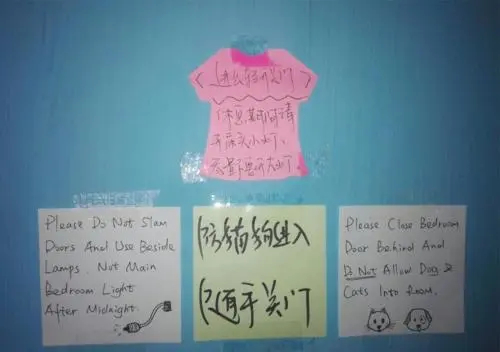 <进出轻开关门>
休息期间请
开床头小灯、
尽量不要开大灯.
Please Do Not Slam
Doors And Use Beside
Lamps. Not Main
Bedroom Light
After Midnight.
防猫狗进入
随手关门
Please Close Bedroom
Door Behind And
Do Not Allow Dog &
Cats Into Room.